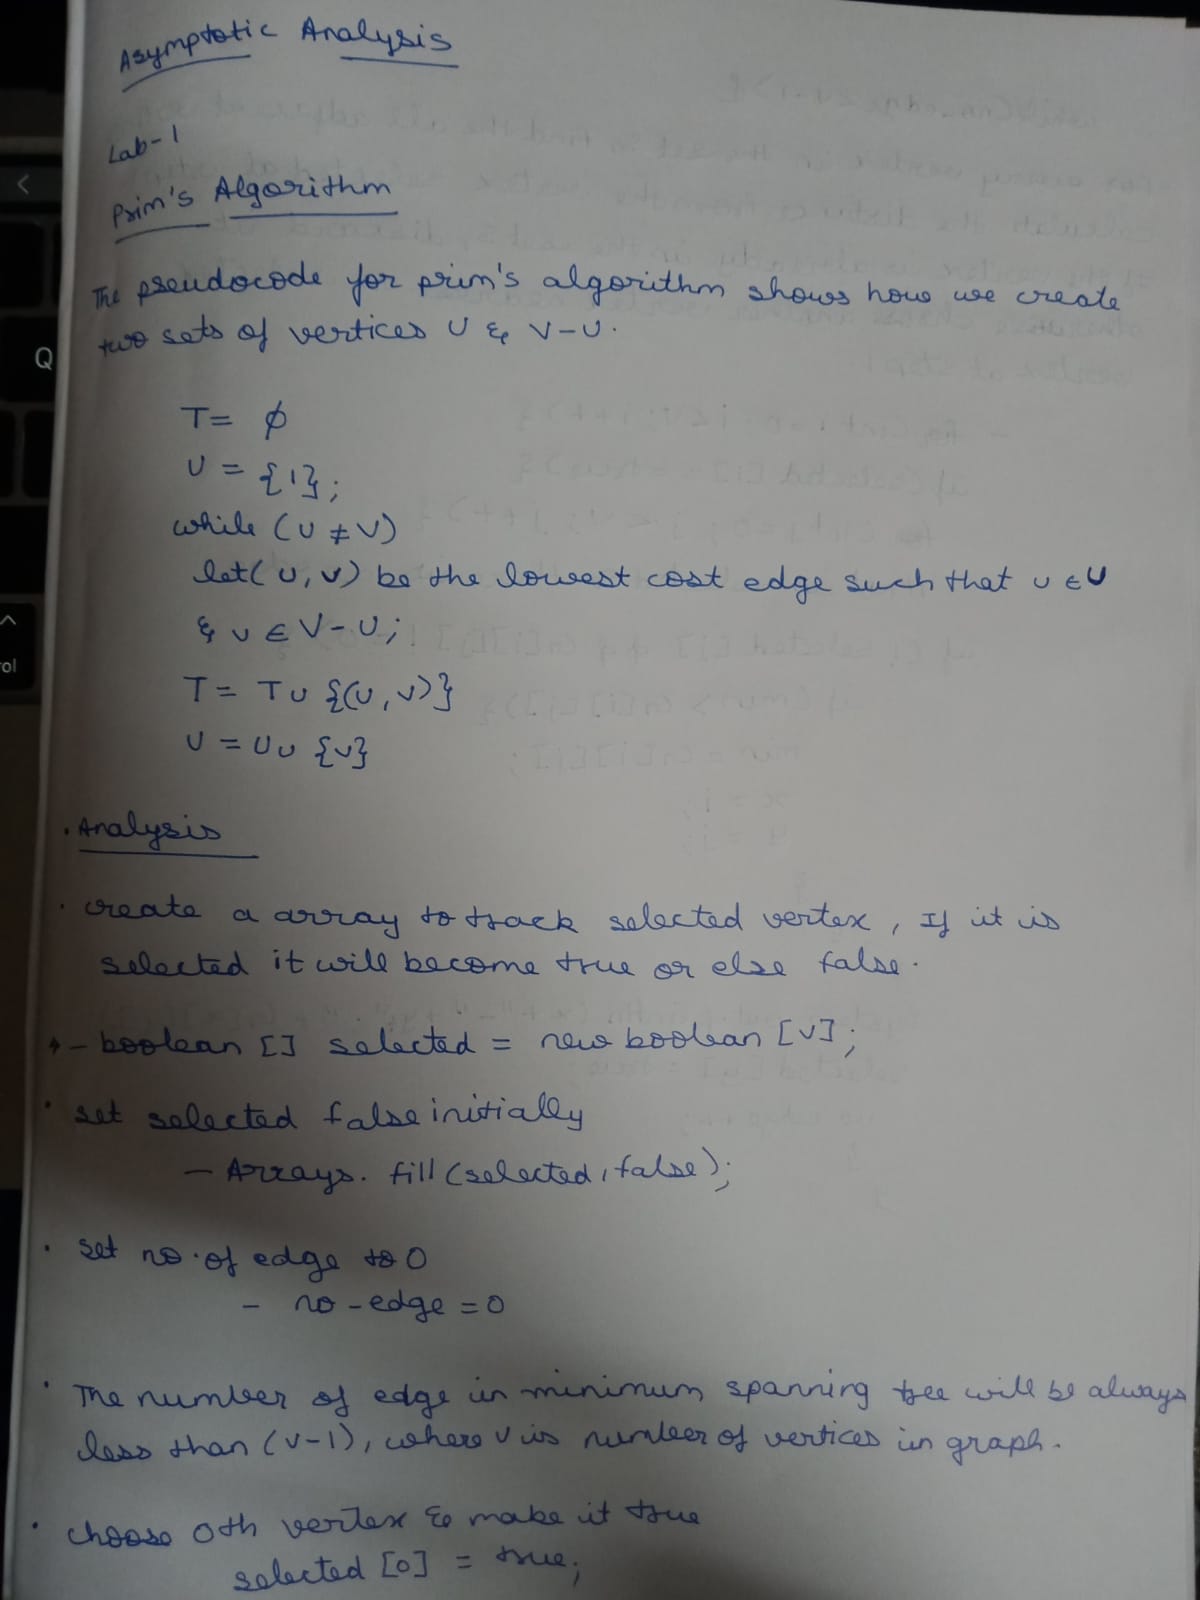 Asymptotic Analysis
Lab-1
Prim's Algorithm
The pseudocode for prim's algorithm shows how we create
two sets of vertices U & V-U.
T= ϕ
U = {1};
while (U ≠ V)
let(u, v) be the lowest cost edge such that u ∈ U
& v ∈ V-U;
T = T∪ {(u, v)}
U = U∪ {v}
. Analysis
. create a array to track selected vertex, If it is
selected it will become true or else false.
→ - boolean [] selected = new boolean [v];
. set selected false initially
- Arrays. fill (selected, false);
. set no. of edge to 0
- no-edge = 0
. The number of edge in minimum spanning tree will be always
less than (v-1), where v is number of vertices in graph.
. choose 0th vertex & make it true
selected [0] = true;
Q
ol